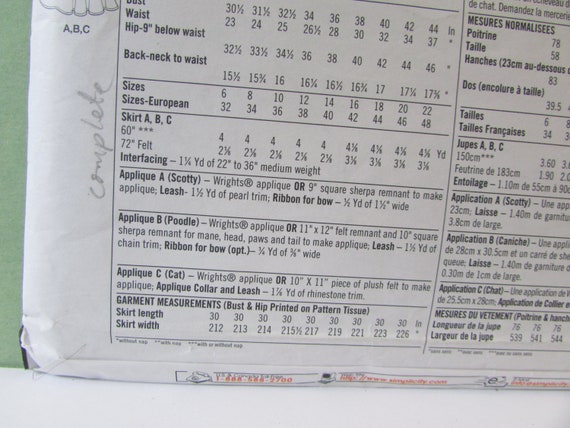 A,B,C
complete
Bust 30½ 31½ 32½ 34 36 38 40 42 44 In
Waist 23 24 25 26½ 28 30 32 34 37 "
Hip-9" below waist
32½ 33½ 34½ 36 38 40 42 44 46 "
Back-neck to waist
15½ 15¾ 16 16¼ 16½ 16¾ 17 17¼ 17⅜ "
Sizes 6 8 10 12 14 16 18 20 22
Sizes-European 32 34 36 38 40 42 44 46 48
Skirt A, B, C
60" *** 4 4 4 4 4 4 4⅛ 4⅛ 4⅛ Yd
72" Felt
Interfacing – 1¼ Yd of 22" to 36" medium weight
Applique A (Scotty) – Wrights® applique OR 9" square sherpa remnant to make
applique; Leash- 1½ Yd of pearl trim; Ribbon for bow – ½ Yd of 1½" wide
Applique B (Poodle) – Wrights® applique OR 11" x 12" felt remnant and 10" square
sherpa remnant for mane, head, paws and tail to make applique; Leash – 1½ Yd of
chain trim; Ribbon for bow (opt.)– ¼ Yd of ⅜" wide
Applique C (Cat) – Wrights® applique OR 10" X 11" piece of plush felt to make
applique; Applique Collar and Leash – 1⅞ Yd of rhinestone trim.
GARMENT MEASUREMENTS (Bust & Hip Printed on Pattern Tissue)
Skirt length 30 30 30 30 30 30 30 30 30 In
Skirt width 212 213 214 215½ 217 219 221 223 226 "
*without nap **with nap ***with or without nap
de chat. Demandez la mercerie
MESURES NORMALISÉES
Poitrine 78
Taille 58
Hanches (23cm au-dessous d
83
Dos (encolure à taille)
39.5 4
Tailles 6 8
Tailles Françaises 34 3
Jupes A, B, C
150cm*** 3.60 3.
Feutrine de 183cm 1.90 2.
Entoilage – 1.10m de 55cm à 90c
Application A (Scotty) – Une app
23cm; Laisse – 1.40m de garniture
3.8cm de large.
Application B (Caniche) – Une appli
de 28cm x 30.5cm et un carré de she
queue; Laisse – 1.40m de garniture d
0.30m de 1cm de large.
Application C (Chat) – Une applicat
de 25.5cm x 28cm; Application de Collier e
MESURES DU VETEMENT (Poitrine & hanch
Longueur de la jupe 76 76 76
Largeur de la jupe 539 541 544
*sans sens **avec sens
1-888-588-2700
http://www.simplicity.com
info@simplicity